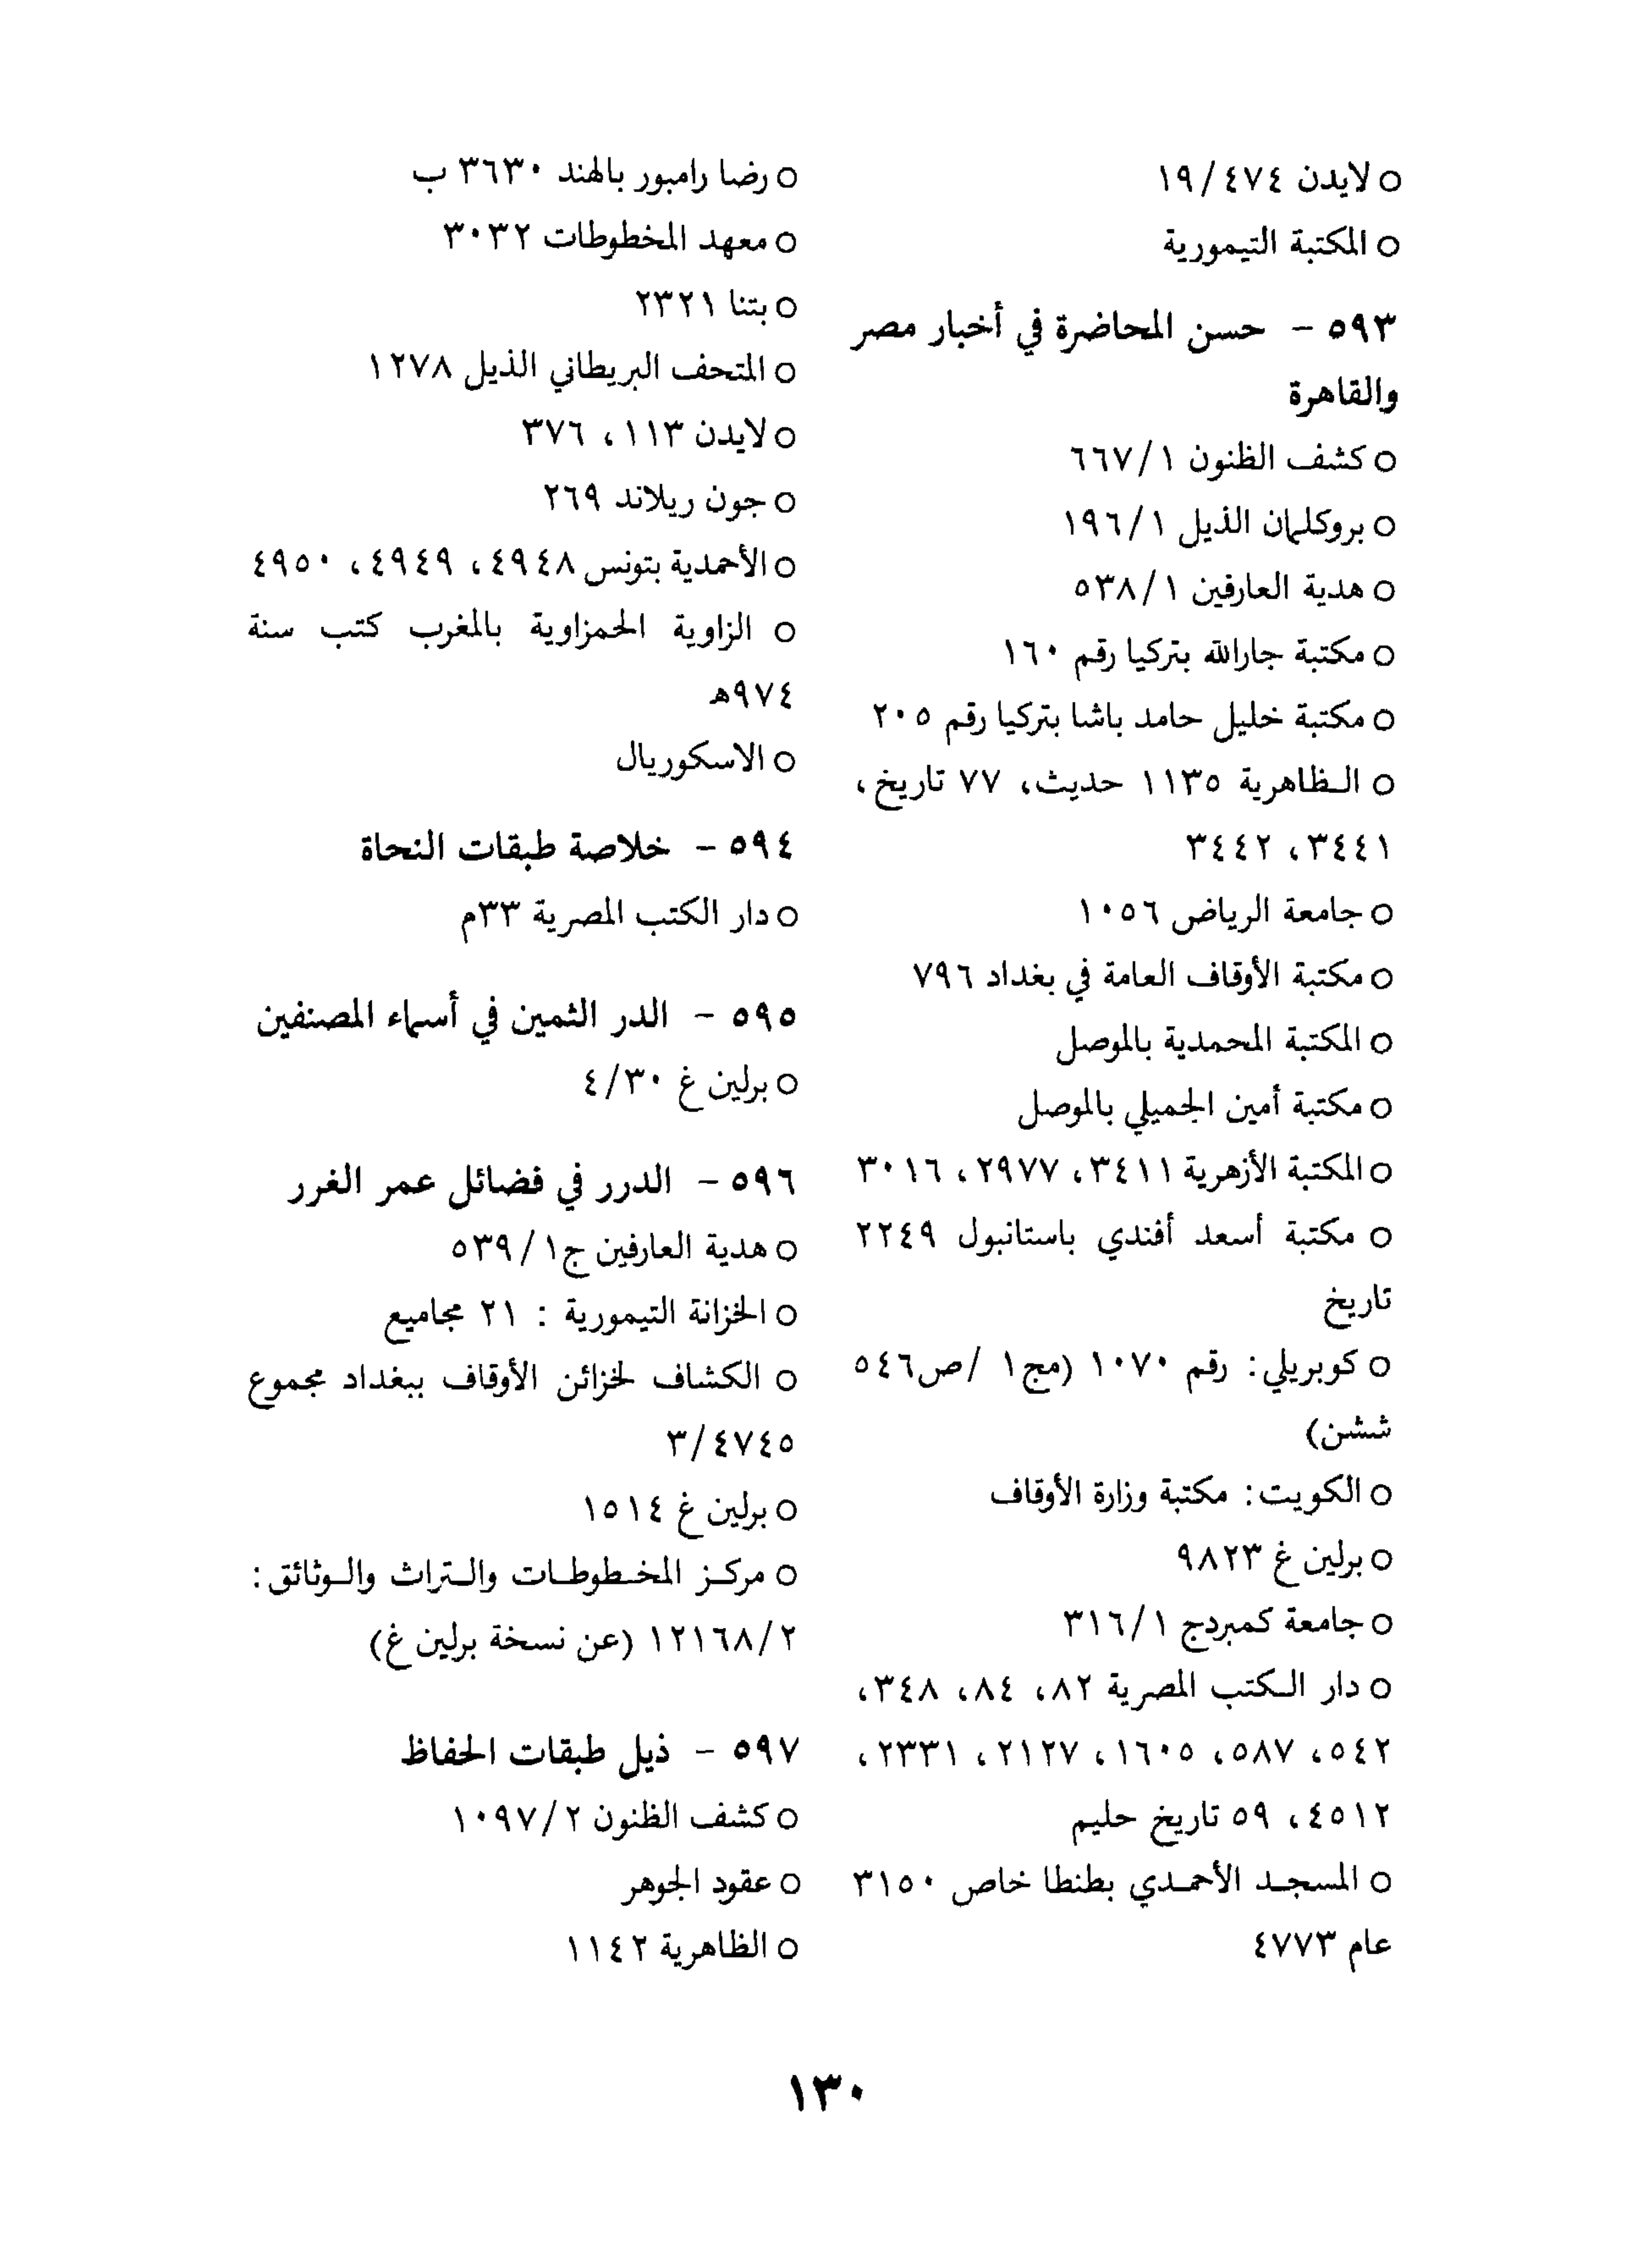 ○ لايدن ٤٧٤/١٩
○ المكتبة التيمورية
٥٩٣ - حسن المحاضرة في أخبار مصر
والقاهرة
○ كشف الظنون ٦٦٧/١
○ بروكلمان الذيل ١٩٦/١
○ هدية العارفين ٥٣٨/١
○ مكتبة جارالله بتركيا رقم ١٦٠
○ مكتبة خليل حامد باشا بتركيا رقم ٢٠٥
○ الظاهرية ١١٣٥ حديث، ٧٧ تاريخ،
٣٤٤١، ٣٤٤٢
○ جامعة الرياض ١٠٥٦
○ مكتبة الأوقاف العامة في بغداد ٧٩٦
○ المكتبة المحمدية بالموصل
○ مكتبة أمين الجميلي بالموصل
○ المكتبة الأزهرية ٣٤١١، ٢٩٧٧، ٣٠١٦
○ مكتبة أسعد أفندي باستانبول ٢٢٤٩
تاريخ
○ كوبريلي: رقم ١٠٧٠ (مج١ /ص٥٤٦
ششن)
○ الكويت: مكتبة وزارة الأوقاف
○ برلين غ ٩٨٢٣
○ جامعة كمبردج ٣١٦/١
○ دار الكتب المصرية ٨٢، ٨٤، ٣٤٨،
٥٤٢، ٥٨٧، ١٦٠٥، ٢١٢٧، ٢٣٣١،
٤٥١٢، ٥٩ تاريخ حليم
○ المسجد الأحمدي بطنطا خاص ٣١٥٠
عام ٤٧٧٣
○ رضا رامبور بالهند ٣٦٣٠ ب
○ معهد المخطوطات ٣٠٣٢
○ بتنا ٢٣٢١
○ المتحف البريطاني الذيل ١٢٧٨
○ لايدن ١١٣، ٣٧٦
○ جون ريلاند ٢٦٩
○ الأحمدية بتونس ٤٩٤٨، ٤٩٤٩، ٤٩٥٠
○ الزاوية الحمزاوية بالمغرب كتب سنة
٩٧٤هـ
○ الاسكوريال
٥٩٤ - خلاصة طبقات النحاة
○ دار الكتب المصرية ٣٣م
٥٩٥ - الدر الثمين في أسماء المصنفين
○ برلين غ ٤/٣٠
٥٩٦ - الدرر في فضائل عمر الغرر
○ هدية العارفين ج١/٥٣٩
○ الخزانة التيمورية : ٢١ مجاميع
○ الكشاف لخزائن الأوقاف ببغداد مجموع
٣/٤٧٤٥
○ برلين غ ١٥١٤
○ مركز المخطوطات والتراث والوثائق:
١٢١٦٨/٢ (عن نسخة برلين غ)
٥٩٧ - ذيل طبقات الحفاظ
○ كشف الظنون ١٠٩٧/٢
○ عقود الجوهر
○ الظاهرية ١١٤٢
١٣٠